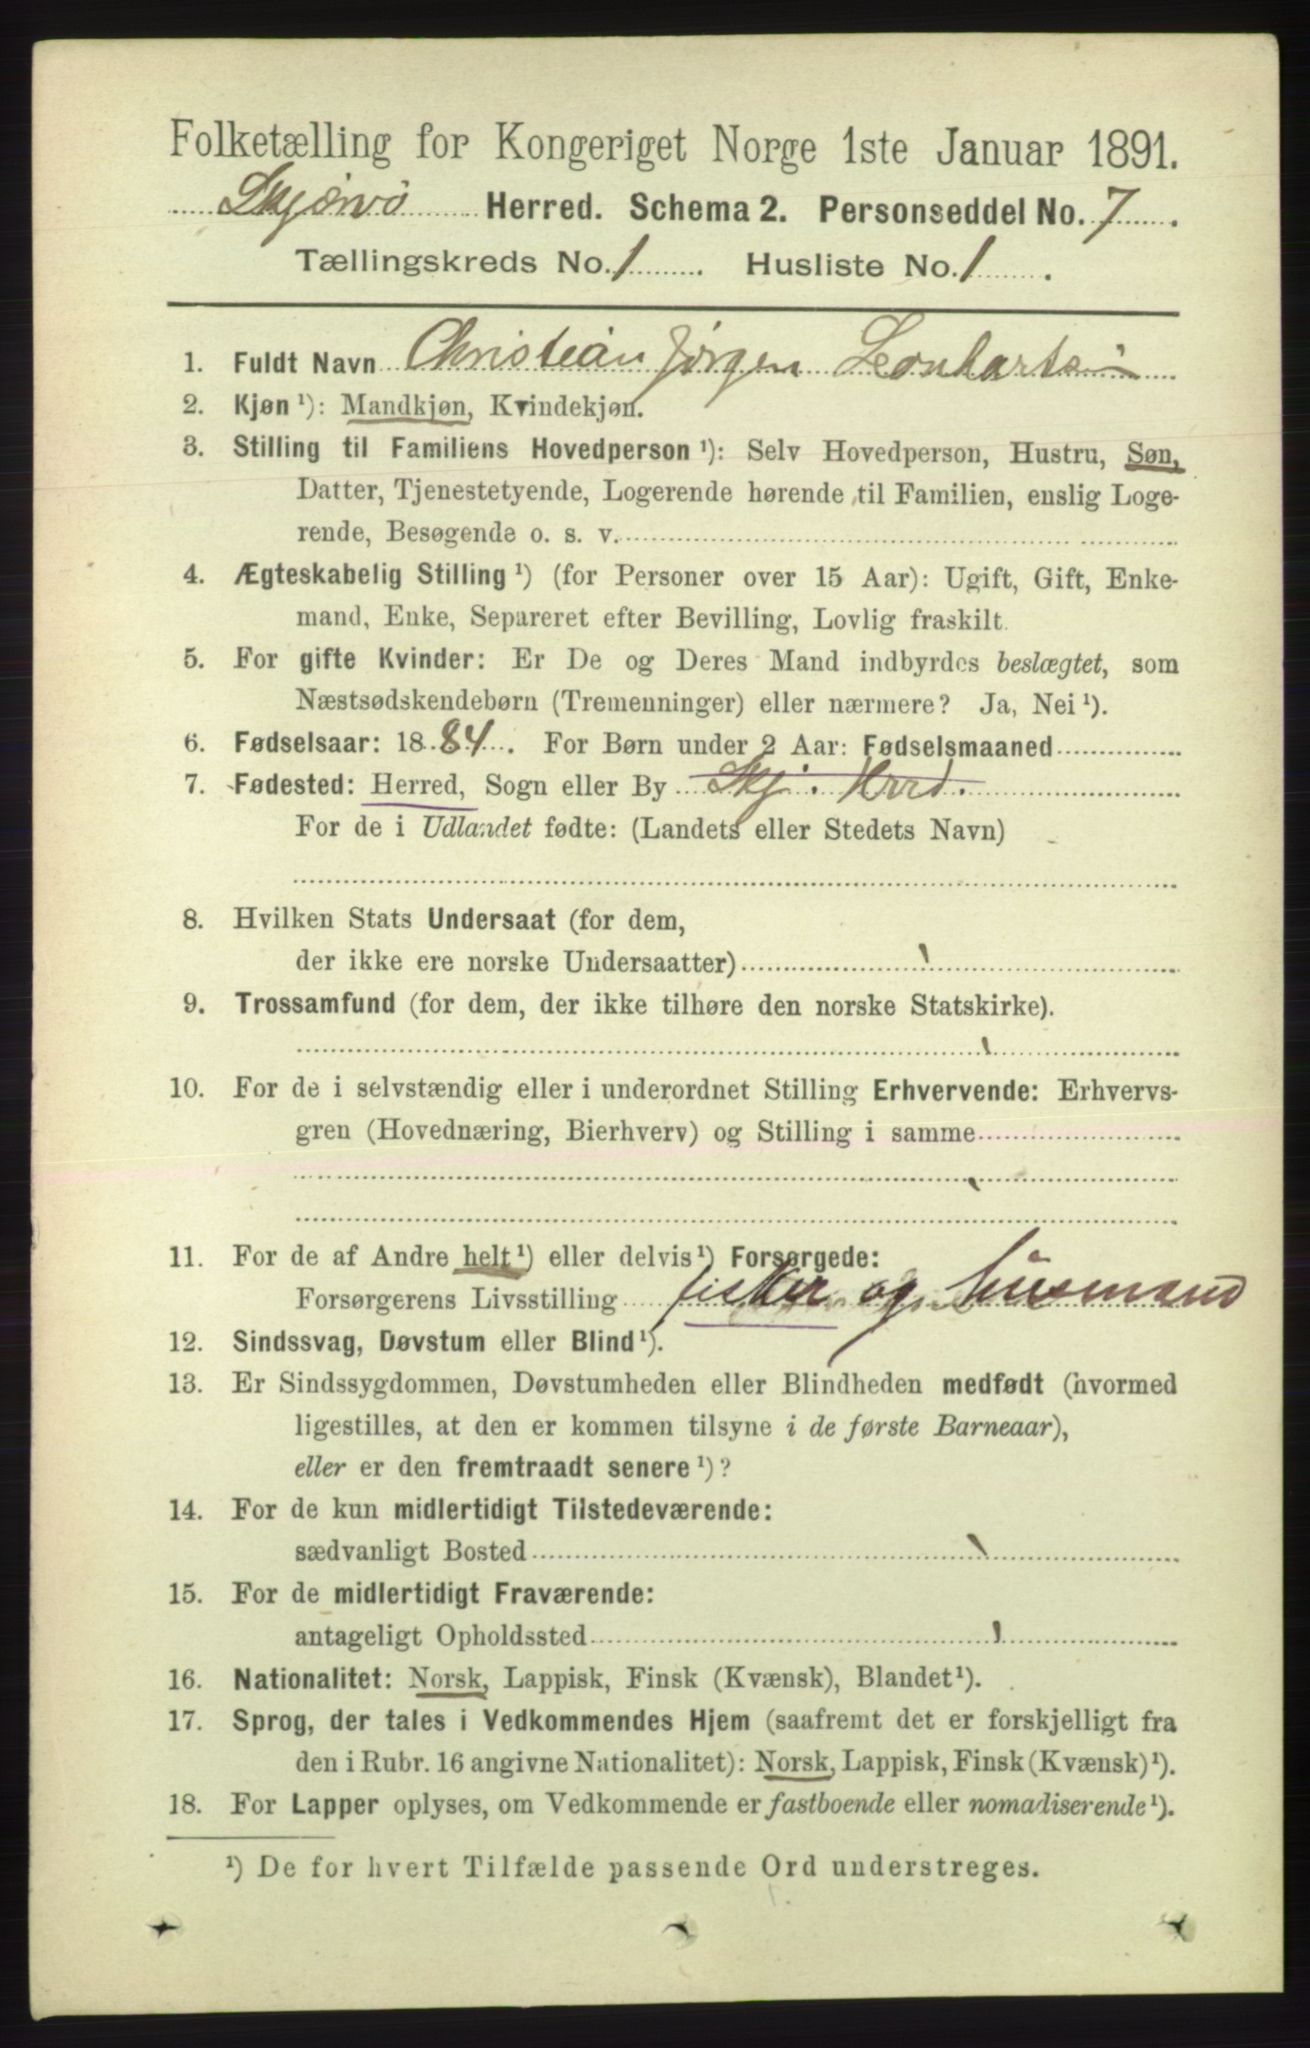 Folketælling for Kongeriget Norge 1ste Januar 1891.
Skjærvö Herred. Schema 2. Personseddel No. 7.
Tællingskreds No. 1. Husliste No. 1.
1. Fuldt Navn Christian Jørgen Leonhartsen
2. Kjøn ¹): Mandkjøn, Kvindekjøn.
3. Stilling til Familiens Hovedperson ¹): Selv Hovedperson, Hustru, Søn,
Datter, Tjenestetyende, Logerende hørende til Familien, enslig Loge-
rende, Besøgende o. s. v.
4. Ægteskabelig Stilling ¹) (for Personer over 15 Aar): Ugift, Gift, Enke-
mand, Enke, Separeret efter Bevilling, Lovlig fraskilt.
5. For gifte Kvinder: Er De og Deres Mand indbyrdes beslægtet, som
Næstsødskendebørn (Tremenninger) eller nærmere? Ja, Nei ¹).
6. Fødselsaar: 1884. For Børn under 2 Aar: Fødselsmaaned
7. Fødested: Herred, Sogn eller By Skj. Herred.
For de i Udlandet fødte: (Landets eller Stedets Navn)
8. Hvilken Stats Undersaat (for dem,
der ikke ere norske Undersaatter)
9. Trossamfund (for dem, der ikke tilhøre den norske Statskirke).
10. For de i selvstændig eller i underordnet Stilling Erhvervende: Erhvervs-
gren (Hovednæring, Bierhverv) og Stilling i samme
11. For de af Andre helt ¹) eller delvis ¹) Forsørgede:
Forsørgerens Livsstilling fisker og husmand
12. Sindssvag, Døvstum eller Blind ¹).
13. Er Sindssygdommen, Døvstumheden eller Blindheden medfødt (hvormed
ligestilles, at den er kommen tilsyne i de første Barneaar),
eller er den fremtraadt senere ¹)?
14. For de kun midlertidigt Tilstedeværende:
sædvanligt Bosted
15. For de midlertidigt Fraværende:
antageligt Opholdssted
16. Nationalitet: Norsk, Lappisk, Finsk (Kvænsk), Blandet ¹).
17. Sprog, der tales i Vedkommendes Hjem (saafremt det er forskjelligt fra
den i Rubr. 16 angivne Nationalitet): Norsk, Lappisk, Finsk (Kvænsk) ¹).
18. For Lapper oplyses, om Vedkommende er fastboende eller nomadiserende ¹).
¹) De for hvert Tilfælde passende Ord understreges.